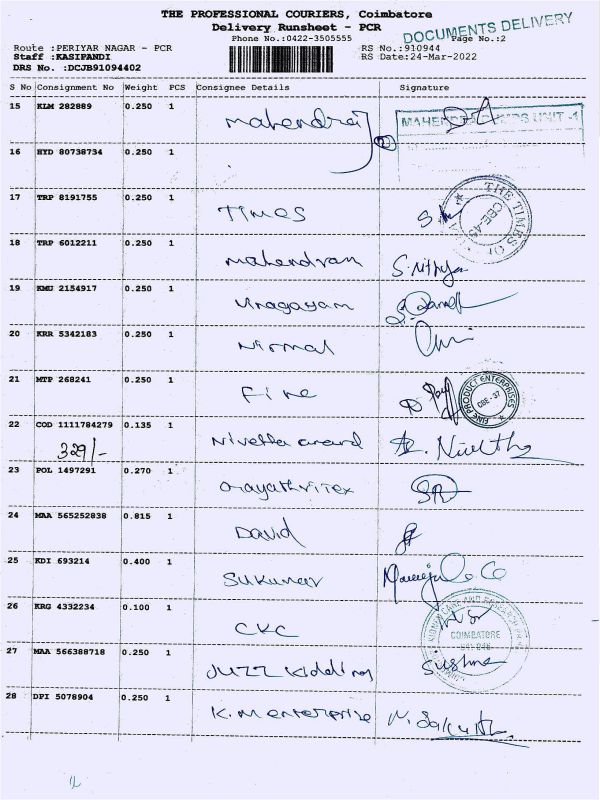 THE PROFESSIONAL COURIERS, Coimbatore
Delivery Runsheet - PCR
DOCUMENTS DELIVERY
Phone No.:0422-3505555 Page No.:2
Route :PERIYAR NAGAR - PCR RS No.:910944
Staff :KASIPANDI RS Date:24-Mar-2022
DRS No. :DCJB91094402
S No Consignment No Weight PCS Consignee Details Signature
15 KLM 282889 0.250 1 Mahendraj
16 HYD 80738734 0.250 1
17 TRP 8191755 0.250 1 TIMES THE TIMES OF CBE-45
18 TRP 6012211 0.250 1 Mahendran
19 KMU 2154917 0.250 1 Vinagayam
20 KRR 5342183 0.250 1 Nirmal
21 MTP 268241 0.250 1 Fine FINE PRODUCT ENTERPRISES CBE-37
22 COD 1111784279 0.135 1 Nivetha anand
329/-
23 POL 1497291 0.270 1
24 MAA 565252838 0.815 1 David
25 KDI 693214 0.400 1 Sukumar
26 KRG 4332234 0.100 1 CKC COIMBATORE
27 MAA 566388718 0.250 1 Sushma
28 DPI 5078904 0.250 1 K.M enterprise